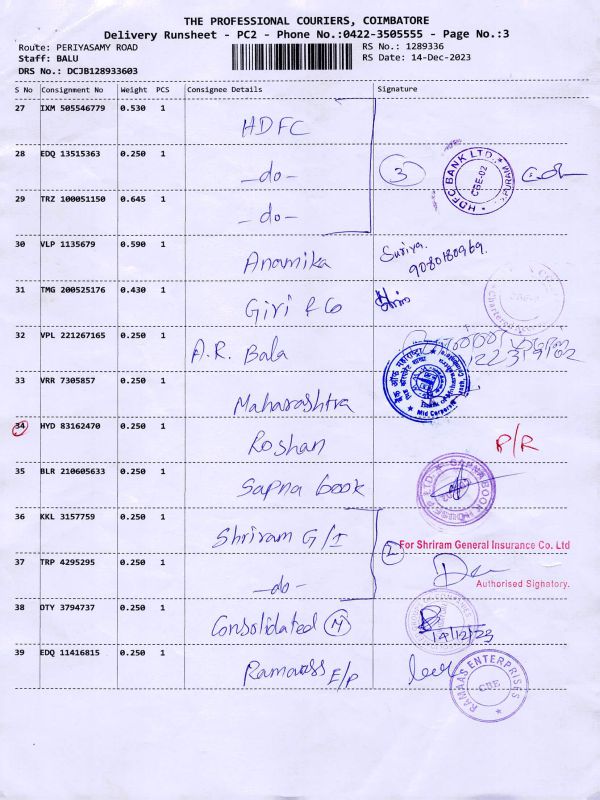 THE PROFESSIONAL COURIERS, COIMBATORE
Delivery Runsheet - PC2 - Phone No.:0422-3505555 - Page No.:3
Route: PERIYASAMY ROAD
RS No.: 1289336
Staff: BALU
RS Date: 14-Dec-2023
DRS No.: DCJB128933603
S No Consignment No Weight PCS Consignee Details Signature
27 IXM 505546779 0.530 1 HDFC
28 EDQ 13515363 0.250 1 -do- 3
HDFC BANK LTD. PURAM CBE-02
29 TRZ 100051150 0.645 1 -do-
30 VLP 1135679 0.590 1 Anamika Suriya.
9080180969.
31 TMG 200525176 0.430 1 Giri & Co
Chartered
32 VPL 221267165 0.250 1 A.R. Bala
33 VRR 7305857 0.250 1 Maharashtra
Mid Corporate
34 HYD 83162470 0.250 1 Roshan P/R
35 BLR 210605633 0.250 1 Sapna book
SAPNA BOOK HOUSE P LTD.
36 KKL 3157759 0.250 1 Shriram G/I 2
For Shriram General Insurance Co. Ltd
37 TRP 4295295 0.250 1 -do-
Authorised Signatory.
38 DTY 3794737 0.250 1 Consolidated M
14/12/23
39 EDQ 11416815 0.250 1 Ramaass E/P
RAMAAS ENTERPRISES CBE